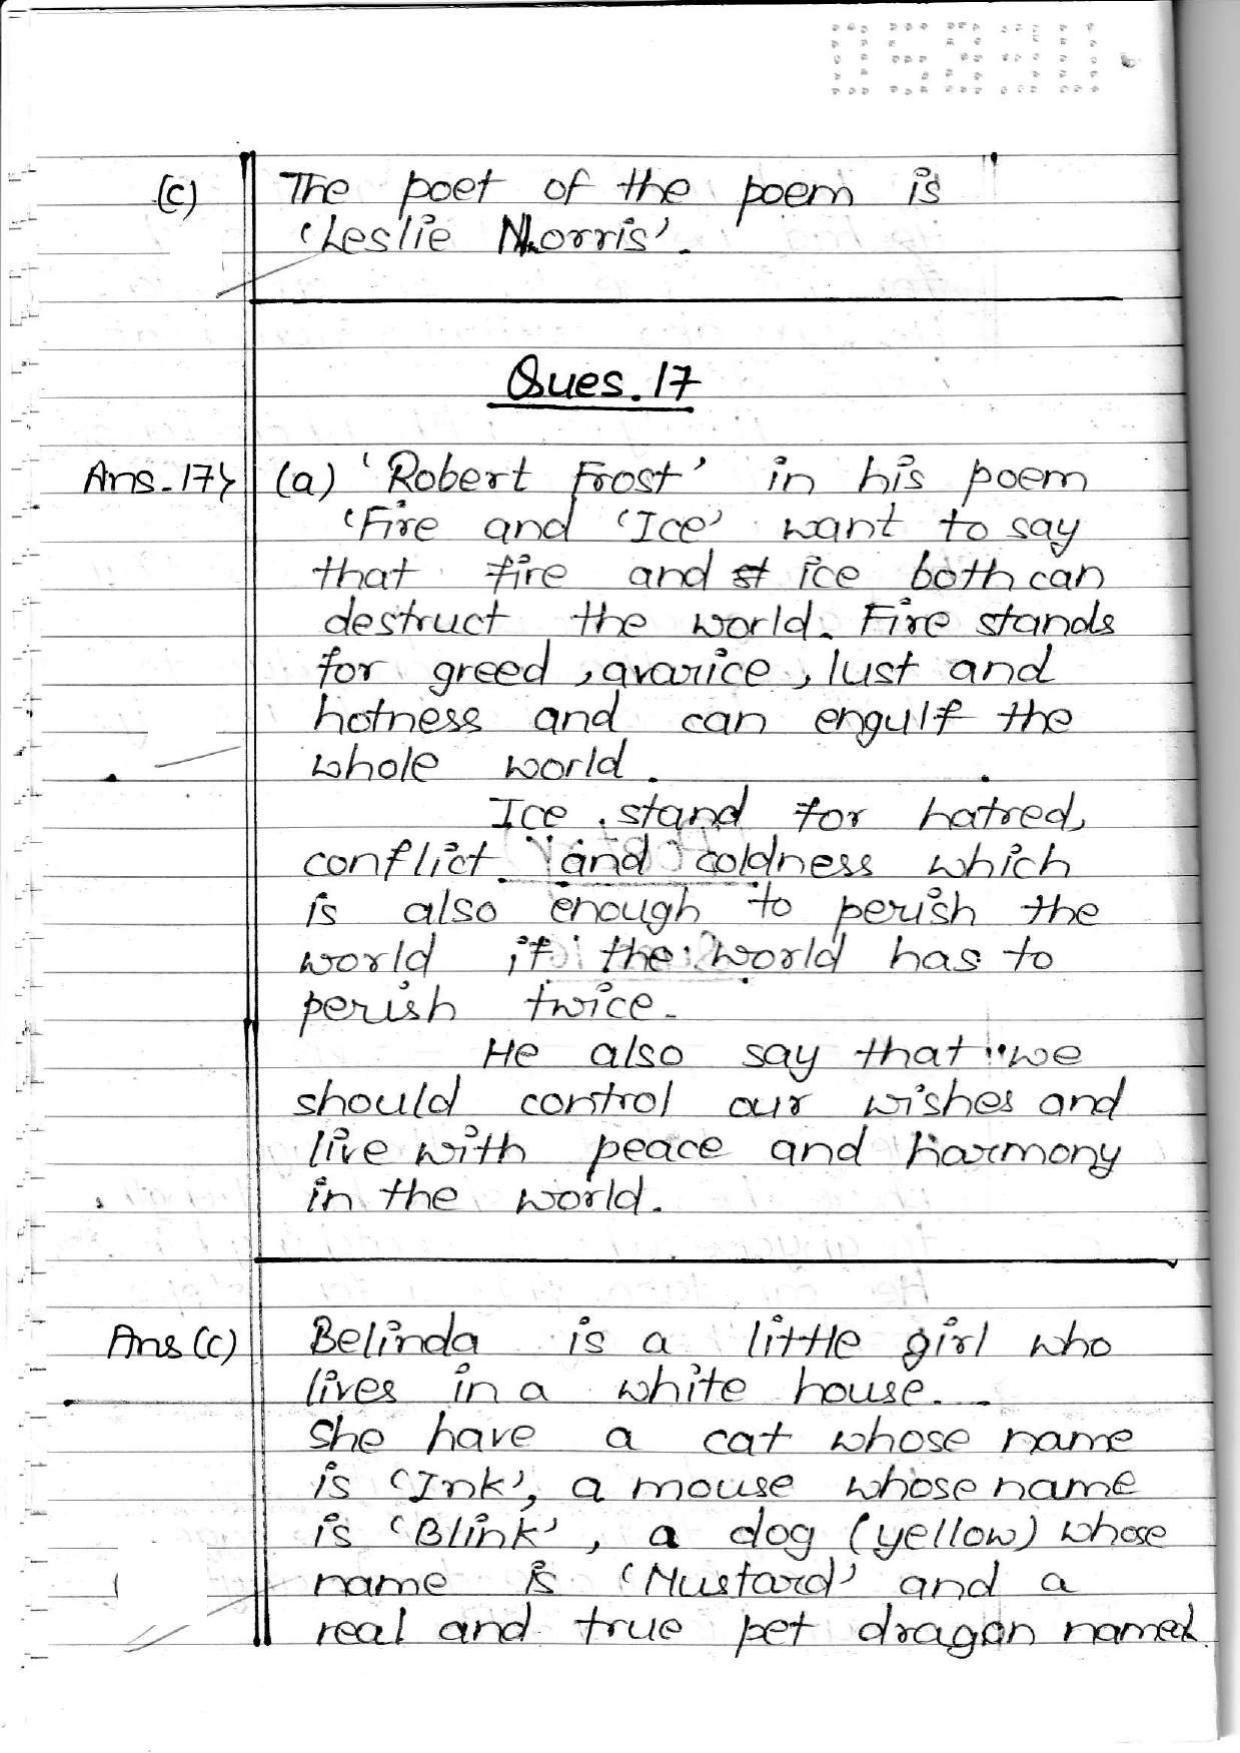 (c) The poet of the poem is
'Leslie Norris'.
Ques. 17
Ans. 17> (a) 'Robert Frost' in his poem
'Fire and 'Ice' want to say
that fire and ice both can
destruct the world. Fire stands
for greed, avarice, lust and
hotness and can engulf the
whole world.
Ice stand for hatred,
conflict and coldness which
is also enough to perish the
world if the world has to
perish twice.
He also say that we
should control our wishes and
live with peace and harmony
in the world.
Ans (c) Belinda is a little girl who
lives in a white house.
She have a cat whose name
is 'Ink', a mouse whose name
is 'Blink', a dog (yellow) whose
name is 'Mustard' and a
real and true pet dragon named